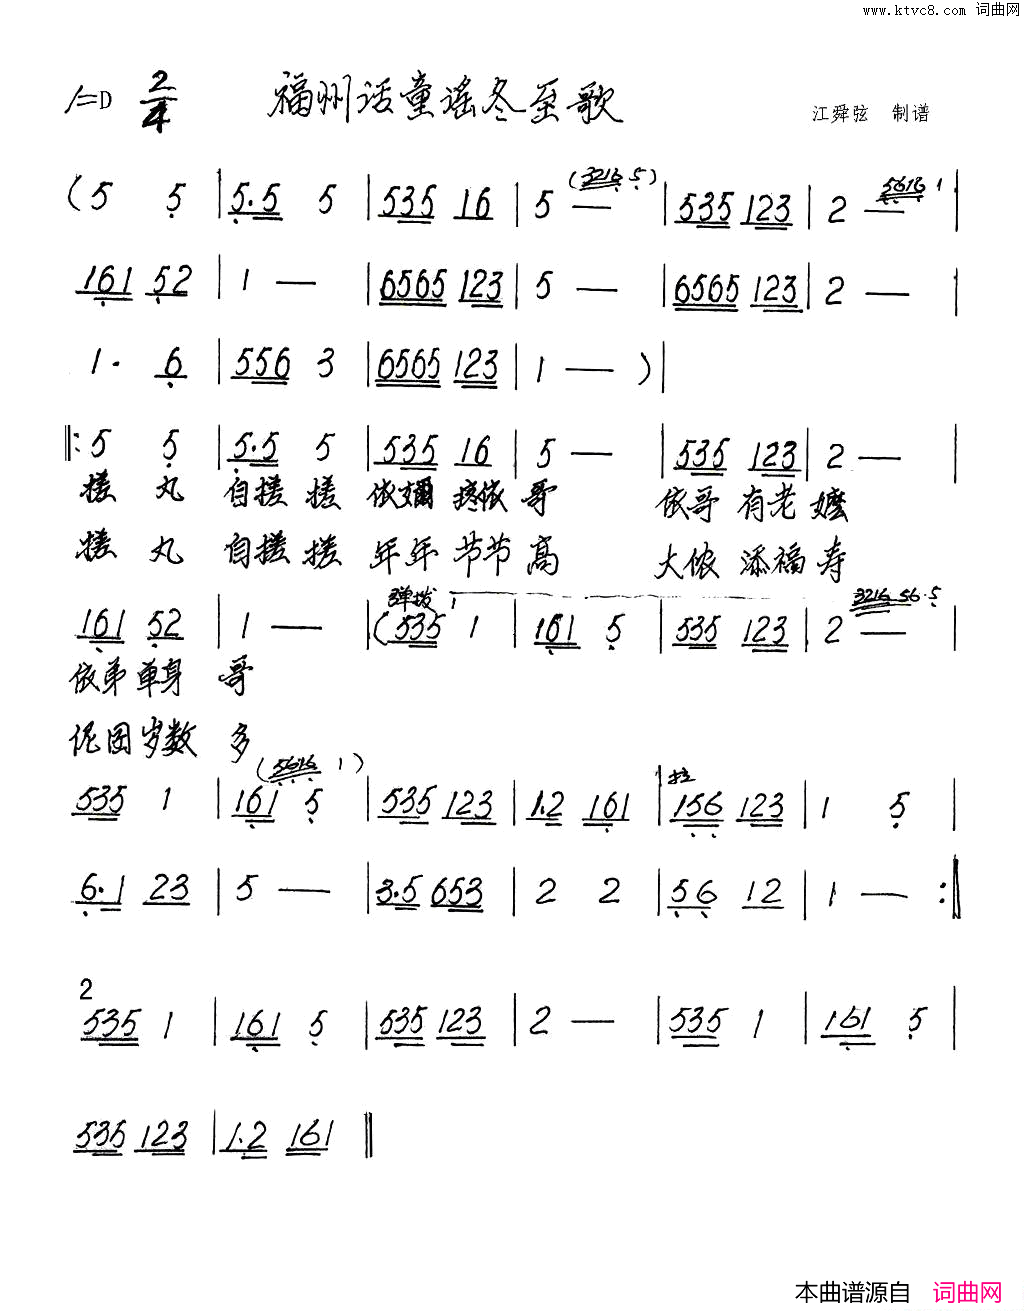 www.ktvc8.com 词曲网
1=D 2/4 福州话童谣冬至歌
江舜弦 制谱
(3216 5)
5616 1
( 5 5 | 5·5 5 | 535 16 | 5 — | 535 123 | 2 — |
161 52 | 1 — | 6565 123 | 5 — | 6565 123 | 2 — |
1· 6 | 556 3 | 6565 123 | 1 — ) |
‖: 5 5 | 5·5 5 | 535 16 | 5 — | 535 123 | 2 — |
搓 丸 自搓 搓 依嬭 疼依 哥 依哥 有老 嬷
搓 丸 自搓 搓 年年 节节 高 大依 添福 寿
弹拨 1
3216 56·5
161 52 | 1 — | (535 1 | 161 5 | 535 123 | 2 — |
依弟 单身 哥
伲囝 岁数 多
(5616 1)
拉
535 1 | 161 5 | 535 123 | 1·2 161 | 156 123 | 1 5 |
6·1 23 | 5 — | 3·5 653 | 2 2 | 56 12 | 1 — :‖
2
535 1 | 161 5 | 535 123 | 2 — | 535 1 | 161 5 |
535 123 | 1·2 161 ‖
本曲谱源自 词曲网